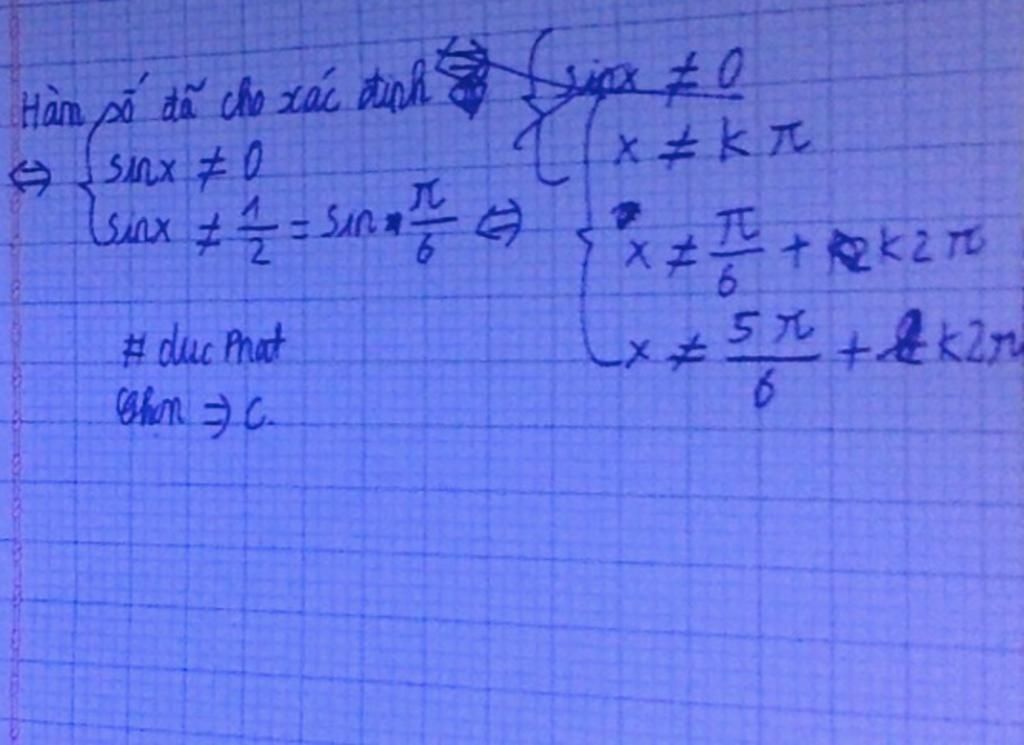 Hàm số đã cho xác định
sinx ≠ 0
⇔ { sinx ≠ 0
sinx ≠ 1/2 = sin π/6 ⇔
{ x ≠ kπ
x ≠ π/6 + k2π
x ≠ 5π/6 + k2π
# duc Phat
Chọn ⇒ C.